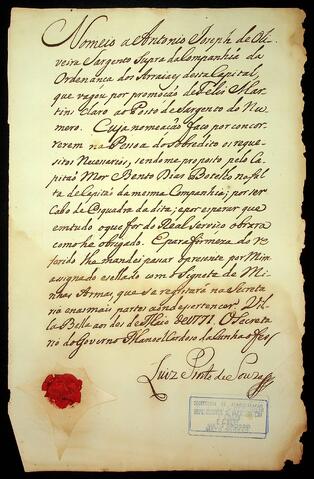 Nomeio a Antonio Joseph de Oli-
veira Sargento Supra da Companhia da
Ordenança dos Arraiaes desta Capital,
que vagou por promoção de Felis Mar-
tins Claro ao Posto de Sargento do Nu-
mero. Cuja nomeação faço por concor-
rerem na Pessoa do sobredito os requi-
sitos Necesarios, sendo me proposto pelo Ca-
pitão Mor Bento Dias Botelho na fal-
ta de Capitão da mesma Companhia; por ser
Cabo de Esquadra da dita; e por esperar que
em tudo o que for do Real Serviço obrara
como he obrigado. E para firmeza do re-
ferido lhe mandei pasar a presente por Mim
asignado e sellado com o Signete de Mi-
nhas Armas, que se registará na Secreta
ria e nas mais partes a onde pertencer. Vil-
la Bella aos dois de Maio de 1771. O Secreta
rio do Governo Manoel Cardoso da Cunha o fes
Luiz Pinto de Souza